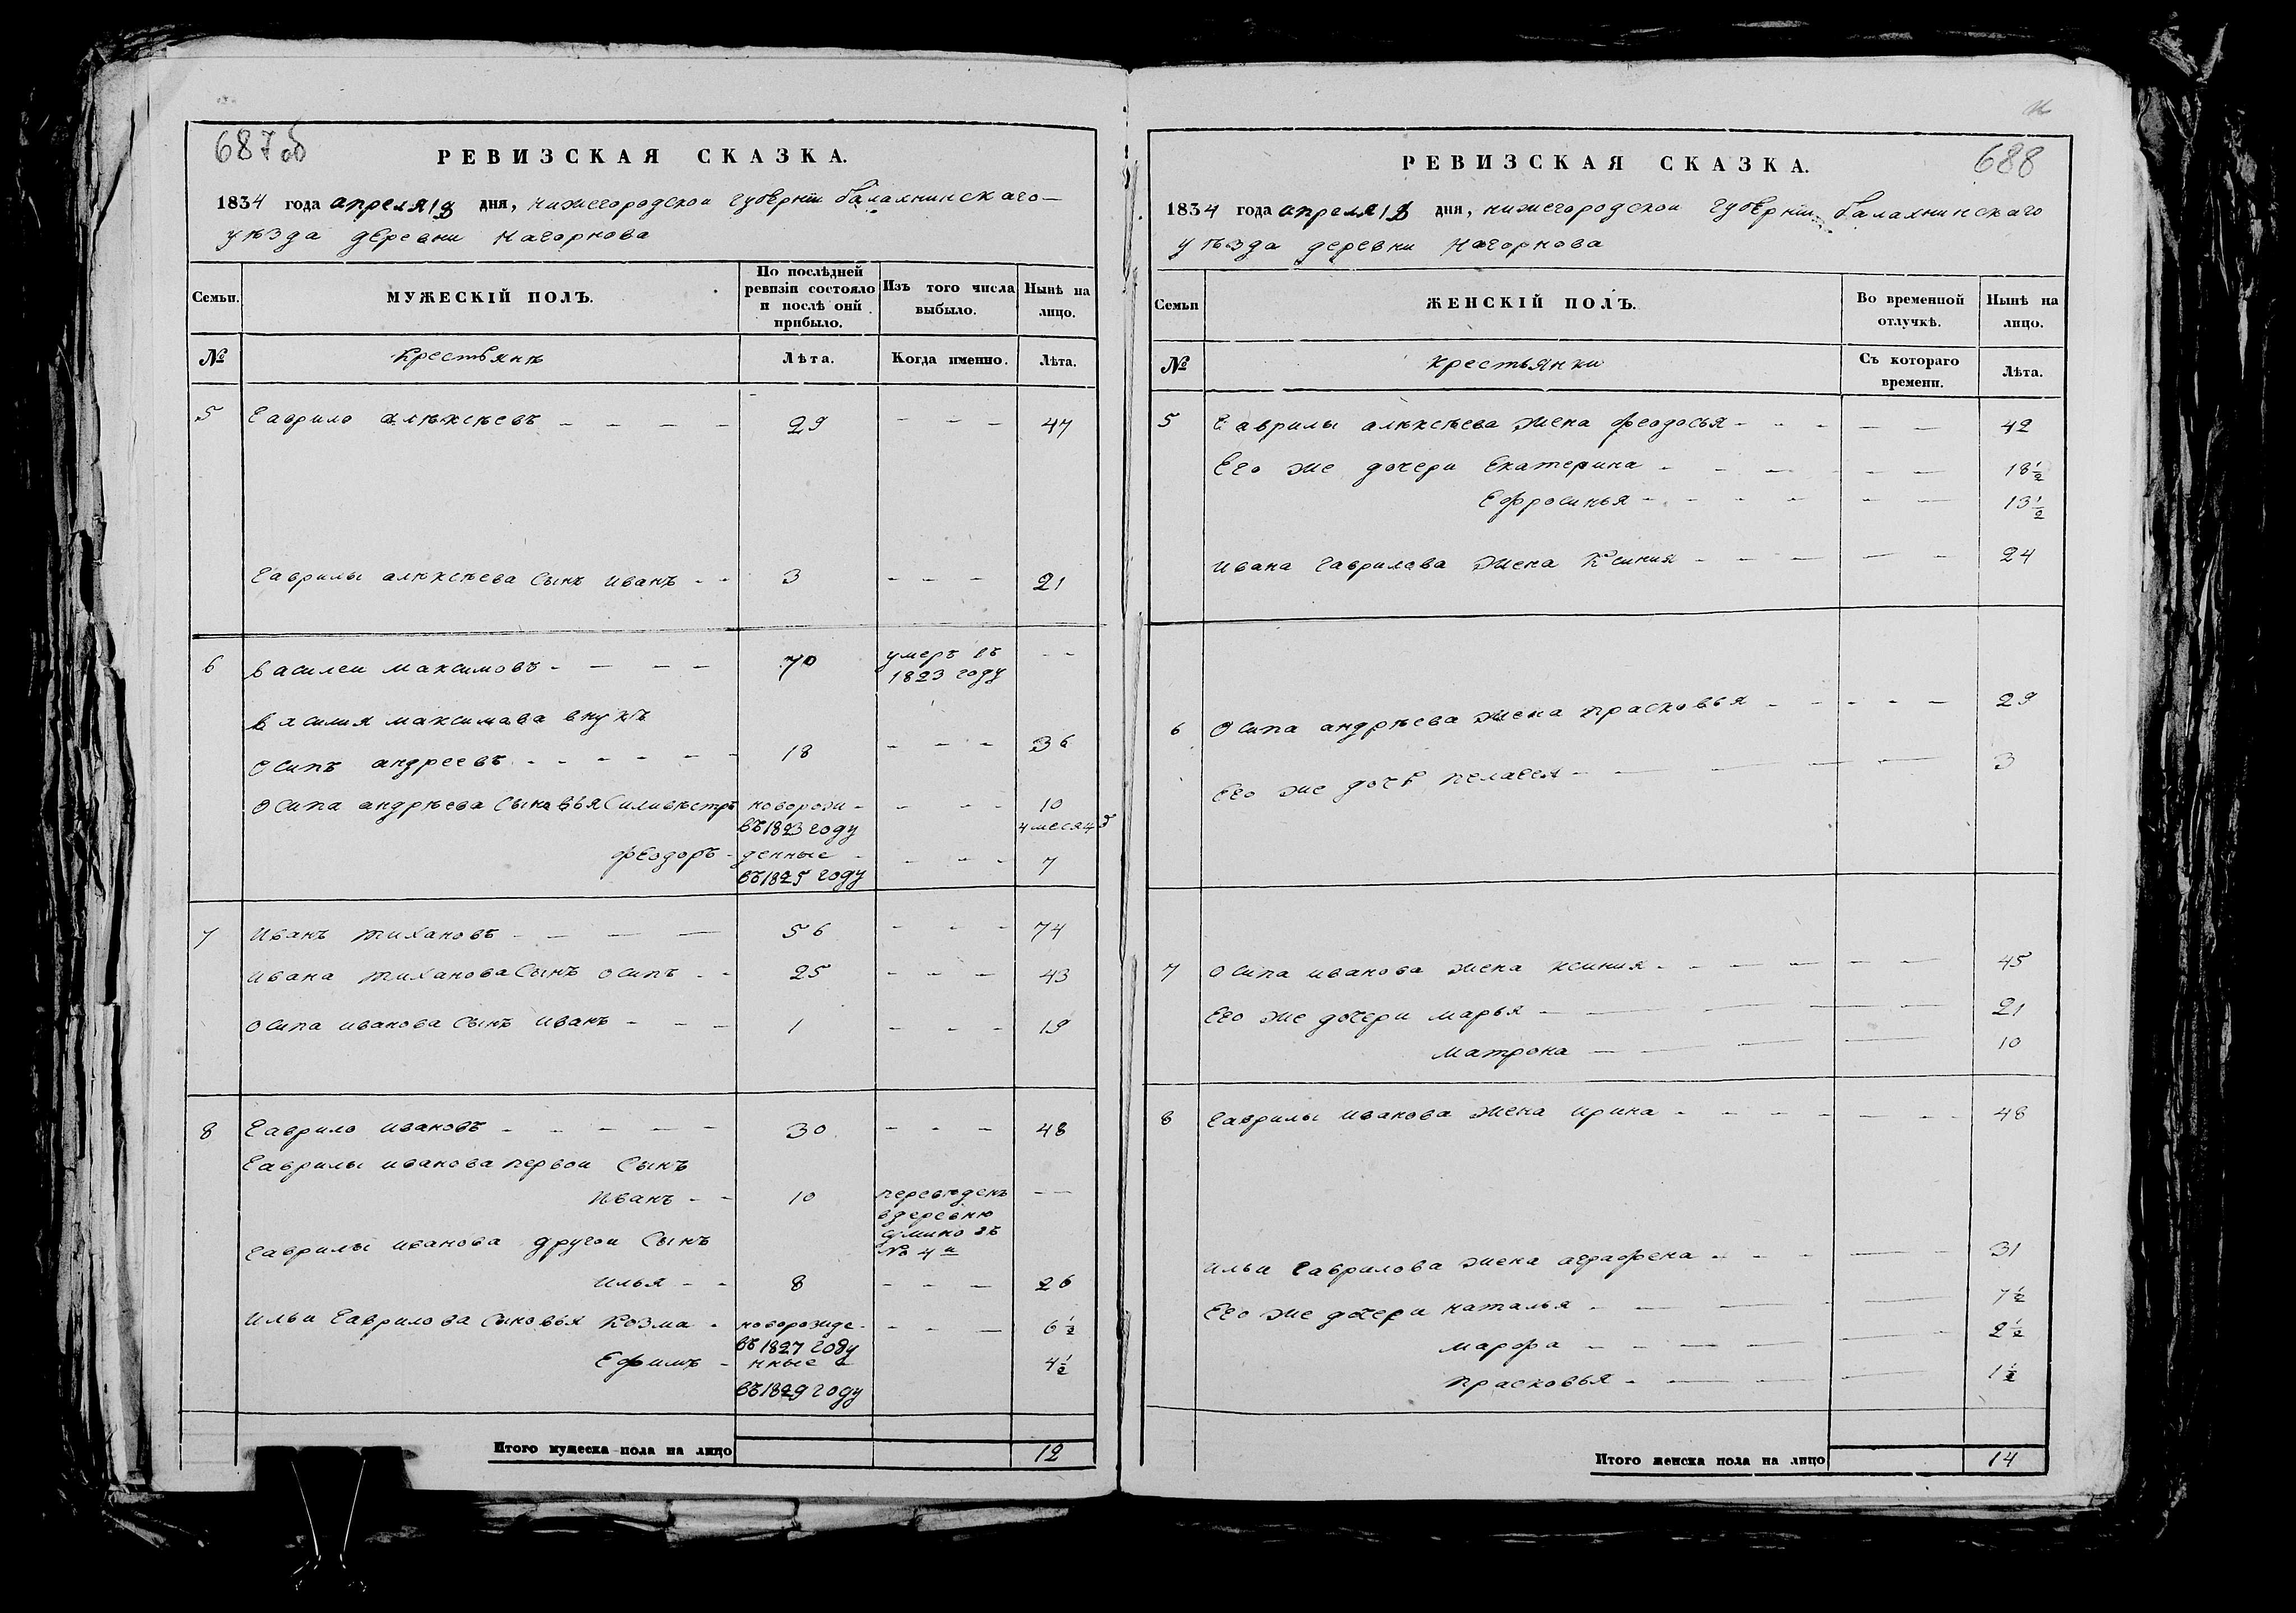 687 об
РЕВИЗСКАЯ СКАЗКА.
1834 года апреля 18 дня, нижегородскои губернiи балахнинскаго
уѣзда деревни Нагорнова
Семьи.
МУЖЕСКIЙ ПОЛЪ.
По послѣдней ревизiи состояло и послѣ онй прибыло.
Изъ того числа выбыло.
Нынѣ на лицо.
№
Крестьянъ
Лѣта.
Когда именно.
Лѣта.
5 Гаврило алѣксѣевъ 29 47
Гаврилы алѣксѣева сынъ иванъ 3 21
6 василеи максимовъ 70 умеръ въ
1823 году
василия максимова внукъ
осипъ андреевъ 18 36
осипа андрѣева сыновья силивѣстръ новорож- 10
въ 1823 году 4 месяцъ
феодоръ денные 7
въ 1825 году
7 иванъ тихановъ 56 74
ивана тиханова сынъ осипъ 25 43
осипа иванова сынъ иванъ 1 19
8 Гаврило ивановъ 30 48
Гаврилы иванова первои сынъ
иванъ 10 переведенъ
вдеревню
Гаврилы иванова другои сынъ
№ 4и
илья 8 26
ильи Гаврилова сыновья козма новорожде- 6 1/2
въ 1827 году
Ефимъ нные 4 1/2
въ 1829 году
Итого мужеска пола на лицо 12
688
РЕВИЗСКАЯ СКАЗКА.
1834 года апреля 18 дня, нижегородскои губернiи балахнинскаго
уѣзда деревни Нагорнова
Семьи
ЖЕНСКIЙ ПОЛЪ.
Во временной отлучкѣ.
Нынѣ на лицо.
№
крестьянки
Съ котораго времени.
Лѣта.
5 Гаврилы алѣксѣева жена феодосья 42
Его же дочери Екатерина 18 1/2
Ефросинья 13 1/2
ивана Гаврилова жена Ксиния 24
6 осипа андрѣева жена прасковья 29
Его же дочь пелагея 3
7 осипа иванова жена ксиния 45
Его же дочери марья 21
матрона 10
8 Гаврилы иванова жена ирина 48
ильи Гаврилова жена аграфена 31
Его же дочери наталья 7 1/2
марфа 2 1/2
прасковья 1 1/2
Итого женска пола на лицо 14